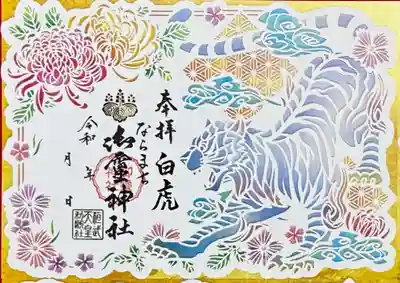 奉拝 白虎
ならまち
御霊神社
令和 年 月 日